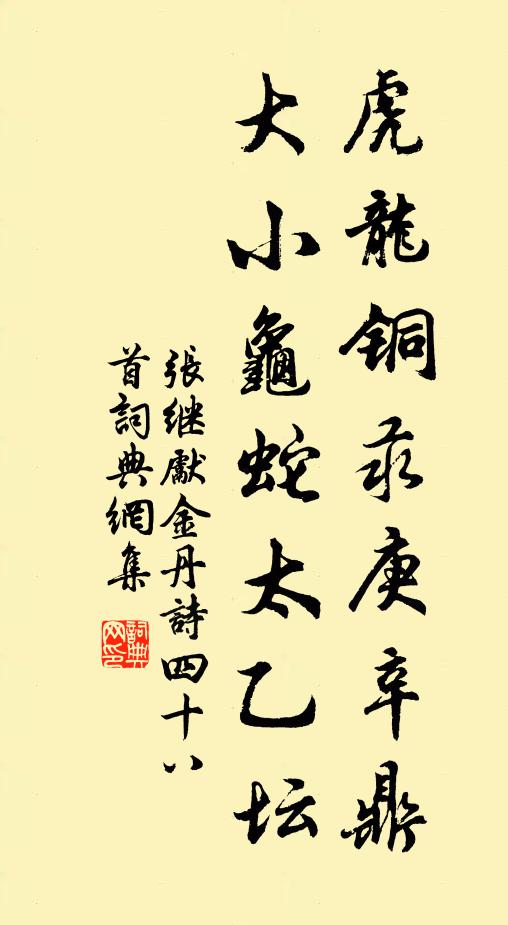 虎龍铜汞庚辛鼎
大小龜蛇太乙坛
張继獻金丹詩四十八
首詞典網集
詞典
网印